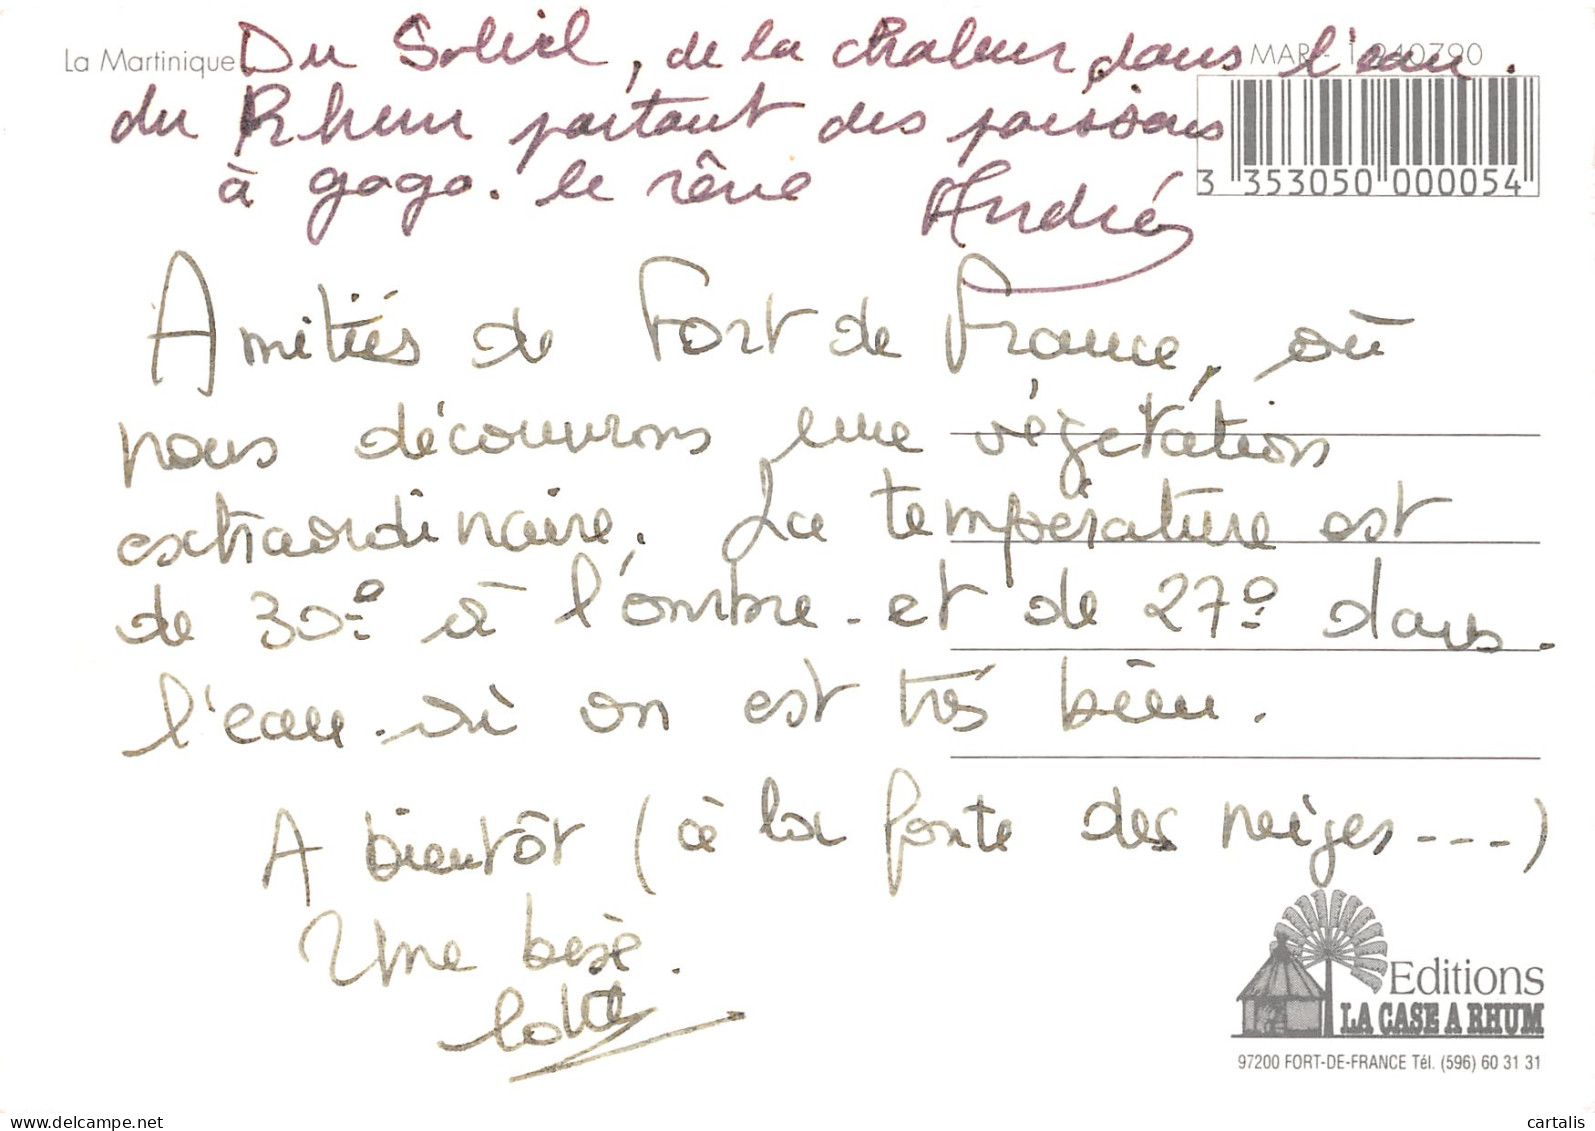 La Martinique
Du Soleil, de la chaleur, dans l'eau.
du Rhum partout des poissons
à gogo. le rêve André
3 353050 000054
Amitiés de Fort de France, où
nous découvrons une végétation
extraordinaire. La température est
de 30° à l'ombre - et de 27° dans
l'eau - où on est très bien.
A bientôt (à la fonte des neiges ---)
Une bise.
Editions
LA CASE A RHUM
97200 FORT-DE-FRANCE Tél. (596) 60 31 31
delcampe.net
cartalis